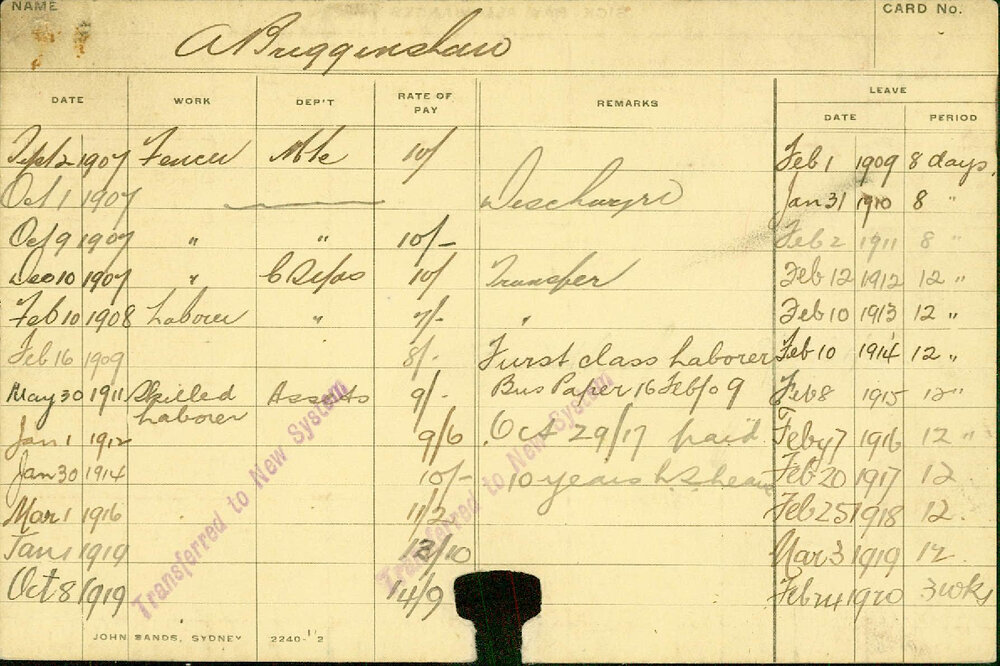 NAME
CARD No.
A Buggenshaw
DATE WORK DEP'T RATE OF PAY REMARKS LEAVE
DATE PERIOD
Sept 2 1907 Fencer 10/ Feb 1 1909 8 days
Oct 1 1907 Discharged Jan 31 1910 8 "
Oct 9 1907 " " 10/- Feb 2 1911 8 "
Dec 10 1907 " 10/ Transfer Feb 12 1912 12 "
Feb 10 1908 Laborer " 7/- Feb 10 1913 12 "
Feb 16 1909 8/- First class Laborer Feb 10 1914 12 "
May 30 1911 Skilled Laborer Assets 9/- Bus Paper 16 Feb/09 Feb 8 1915 12 "
Jan 1 1912 9/6 Oct 29/17 paid Feby 7 1916 12 "
Jan 30 1914 10/- 10 years Feb 20 1917 12
Mar 1 1916 11/2 Feb 25 1918 12
Jan 1 1919 /10 Mar 3 1919 12
Oct 8 1919 14/9 Feb 24 1920 3 wks
Transferred to New System
Transferred to New System
JOHN SANDS, SYDNEY 2240-12